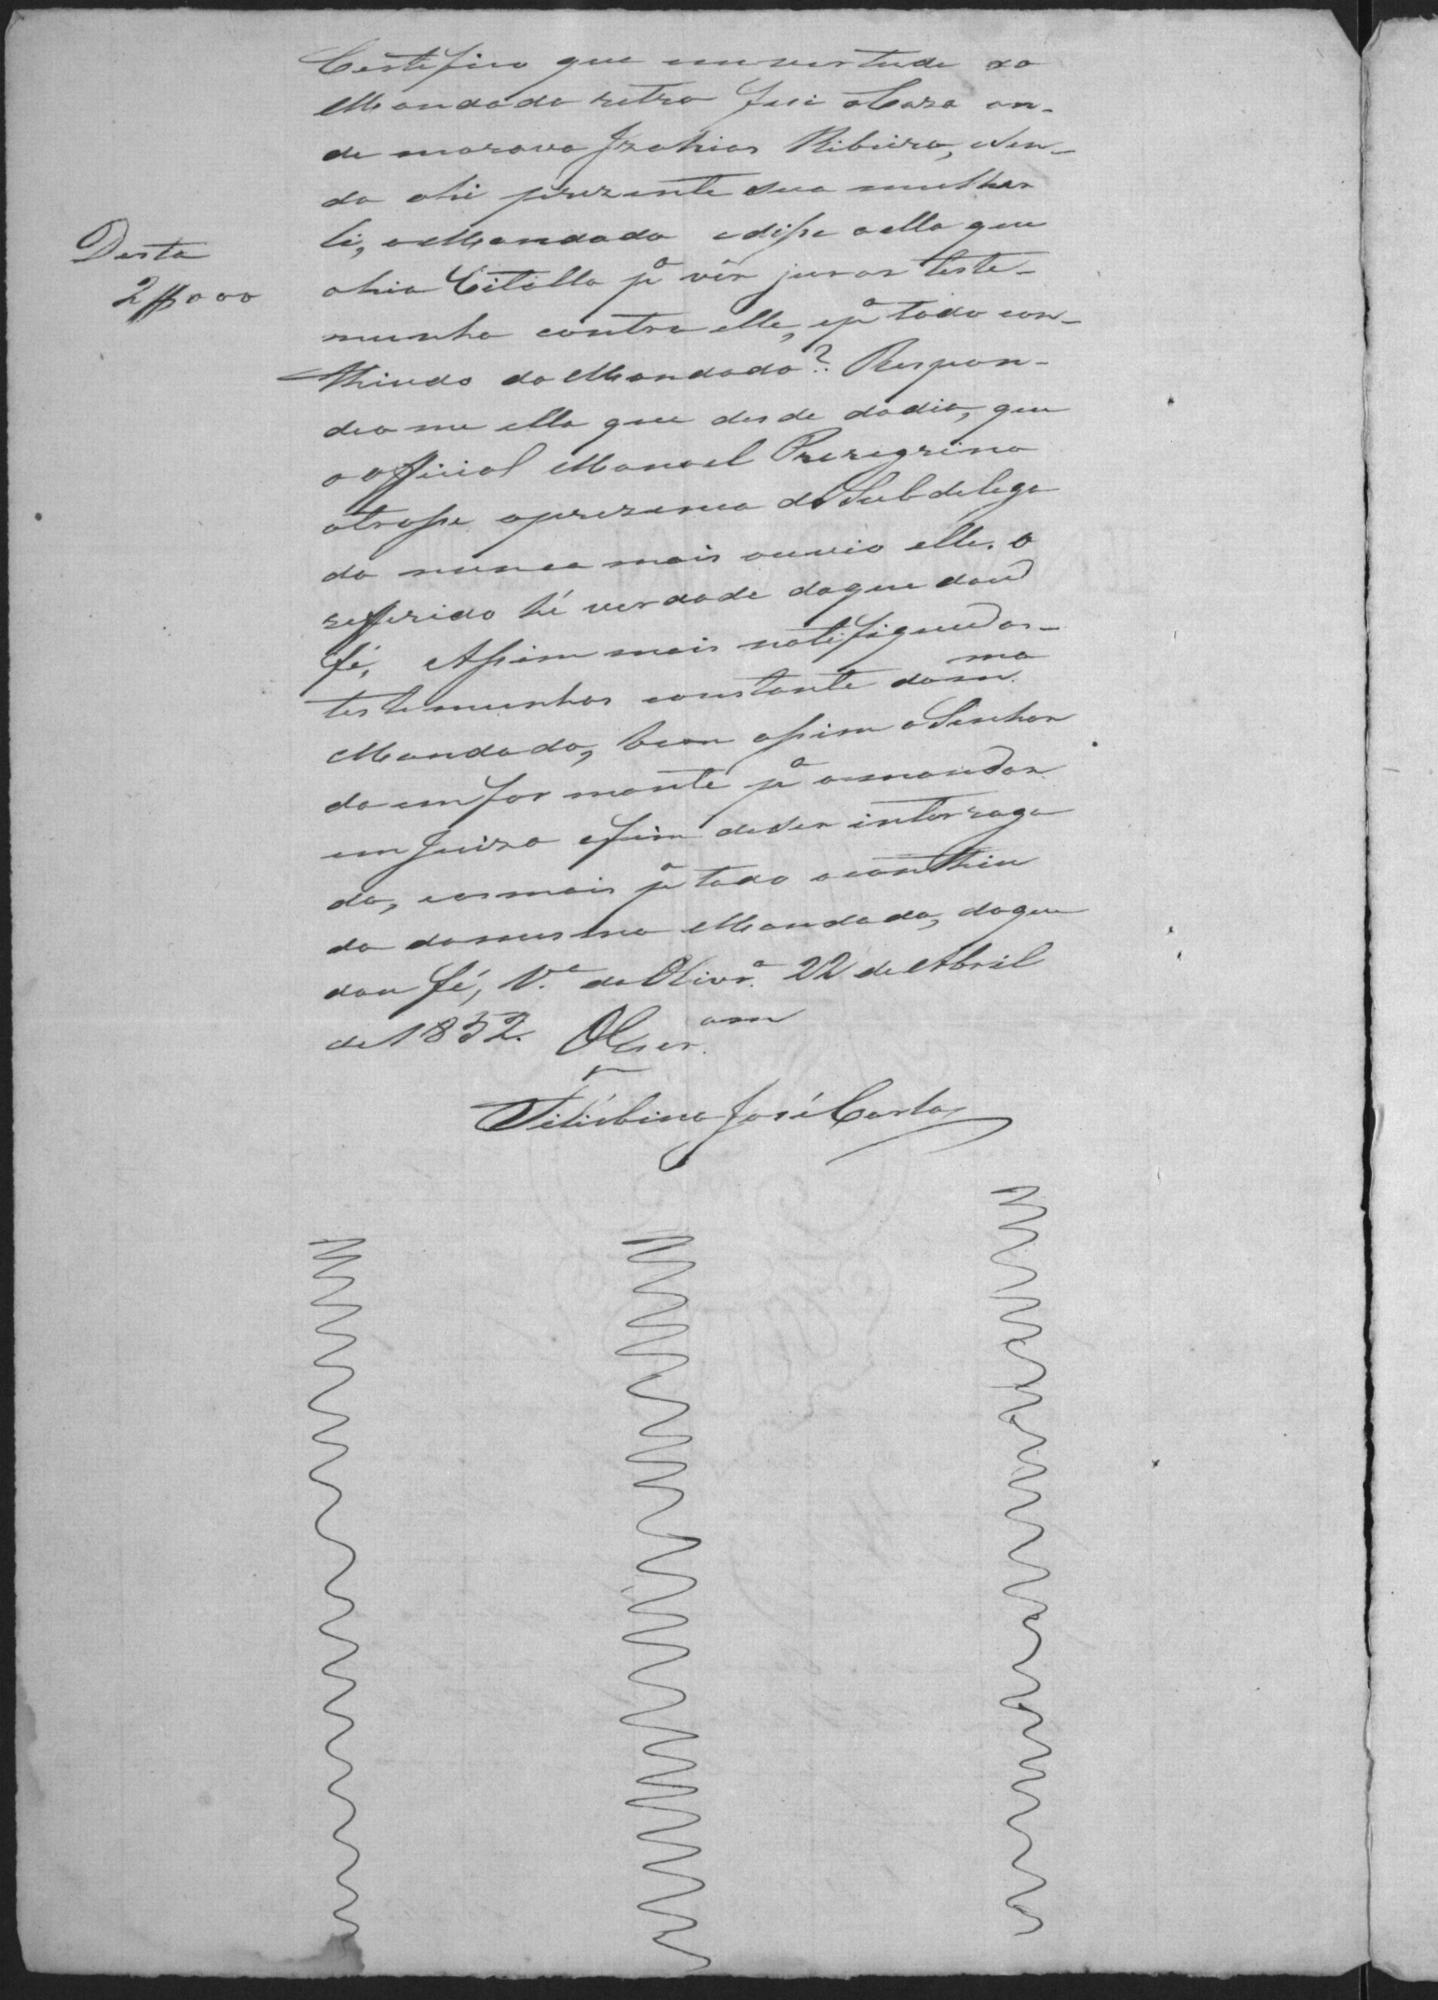 Certifico que em vertude do
Mandado retro fui a Caza on-
de morava Izahias Ribeiro, e sen-
do ahi prezente sua mulher
li, o Mandado e disse a ella que
ahia Citallo pª vêr jurar teste-
munha contra elle, e pª todo con-
Desta
2$000
thiudo do Mandado? Respon-
deo me ella que desde do dia, que
o official Manoel Peregrino
a trosse a prezenca do Subdelega
do nunca mais ouvio elle. o
refferido hé verdade do que dou
fé, Assim mais notifiquei as
testemunhas constante do mmo
Mandado, bem assim o Senhor
do emformante pª o mandar
em Juizo afim de ser interroga
do, e os mais pª todo o conthiu
do do mesmo Mandado, do que
dou fé, Vª do Olivrª 22 de Abril
de 1852.
Felisbino José Carlos